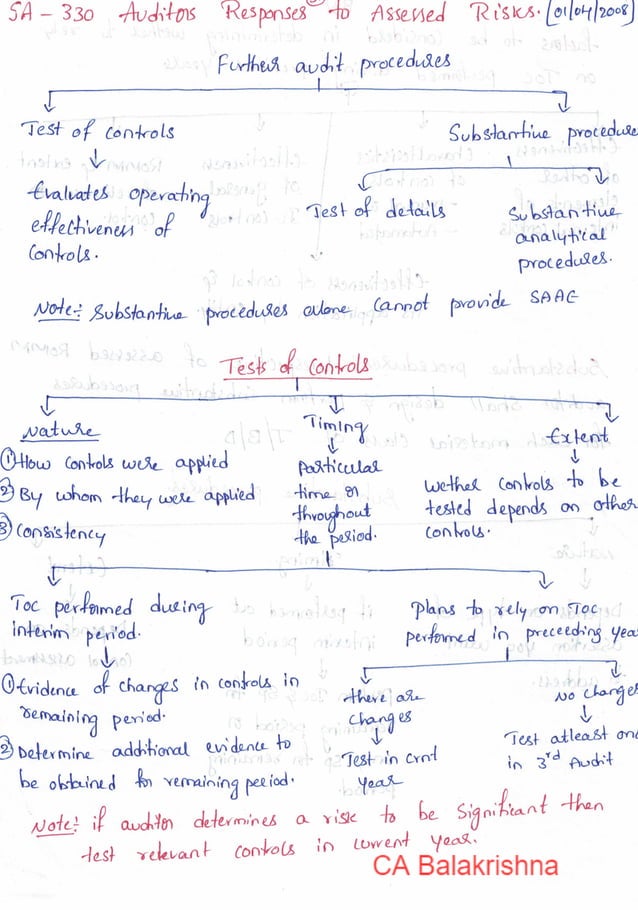 SA - 330 Auditors Responses to Assessed Risks. [01/04/2008]
Further audit procedures
Test of controls
Evaluates operating
effectiveness of
controls.
Substantive procedure
Test of details
Substantive
analytical
procedures.
Note:- Substantive procedures alone cannot provide SAAE
Tests of controls
Nature
① How controls were applied
② By whom they were applied
③ Consistency
Timing
Particular
time or
throughout
the period.
Extent
wether controls to be
tested depends on other
controls.
TOC performed during
interim period.
① Evidence of changes in controls in
remaining period.
② Determine additional evidence to
be obtained for remaining period.
Plans to rely on TOC
performed in preceeding yea
there are
changes
Test in crnt
year
No changes
Test atleast on
in 3rd Audit
Note:- if auditor determines a risk to be Significant then
test relevant controls in current year.
CA Balakrishna